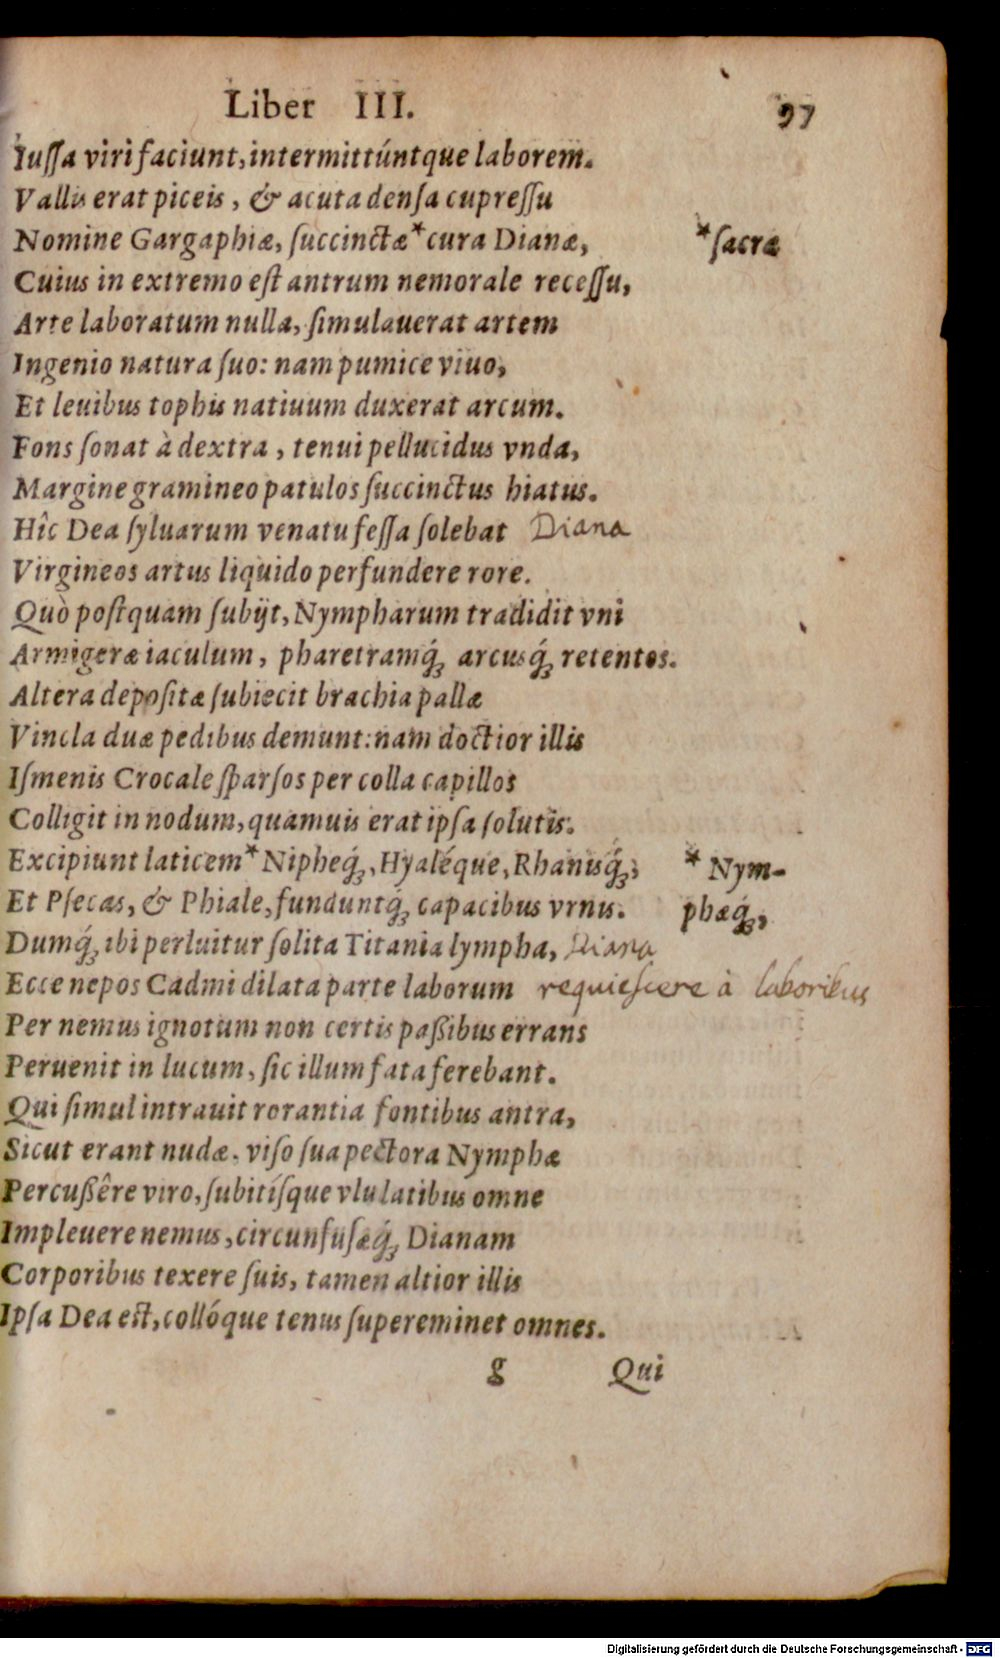 Liber III. 97
Iuſſa viri faciunt, intermittúntque laborem.
Vallis erat piceis, & acuta denſa cupreſſu
Nomine Gargaphiæ, ſuccinctæ * cura Dianæ, * ſacra
Cuius in extremo eſt antrum nemorale receſſu,
Arte laboratum nulla, ſimulauerat artem
Ingenio natura ſuo: nam pumice viuo,
Et leuibus tophis natiuum duxerat arcum.
Fons ſonat à dextra, tenui pellucidus vnda,
Margine gramineo patulos ſuccinctus hiatus.
Hîc Dea ſyluarum venatu feſſa ſolebat Diana
Virgineos artus liquido perfundere rore.
Quò poſtquam ſubijt, Nympharum tradidit vni
Armigeræ iaculum, pharetramq́; arcusq́; retentos.
Altera depoſitæ ſubiecit brachia pallæ
Vincla duæ pedibus demunt: nam doctior illis
Iſmenis Crocale ſparſos per colla capillos
Colligit in nodum, quamuis erat ipſa ſolutis.
Excipiunt laticem * Nipheq́;, Hyaléque, Rhanisq́;, * Nym-
Et Pſecas, & Phiale, funduntq́; capacibus vrnis. phæq́;,
Dumq́; ibi perluitur ſolita Titania lympha, Diana
Ecce nepos Cadmi dilata parte laborum requieſcere à laboribus
Per nemus ignotum non certis paßibus errans
Peruenit in lucum, ſic illum fata ferebant.
Qui ſimul intrauit rorantia fontibus antra,
Sicut erant nudæ, viſo ſua pectora Nymphæ
Percußêre viro, ſubitíſque vlulatibus omne
Impleuere nemus, circunfuſæq́; Dianam
Corporibus texere ſuis, tamen altior illis
Ipſa Dea eſt, collóque tenus ſupereminet omnes.
g Qui
Digitalisierung gefördert durch die Deutsche Forschungsgemeinschaft - DFG